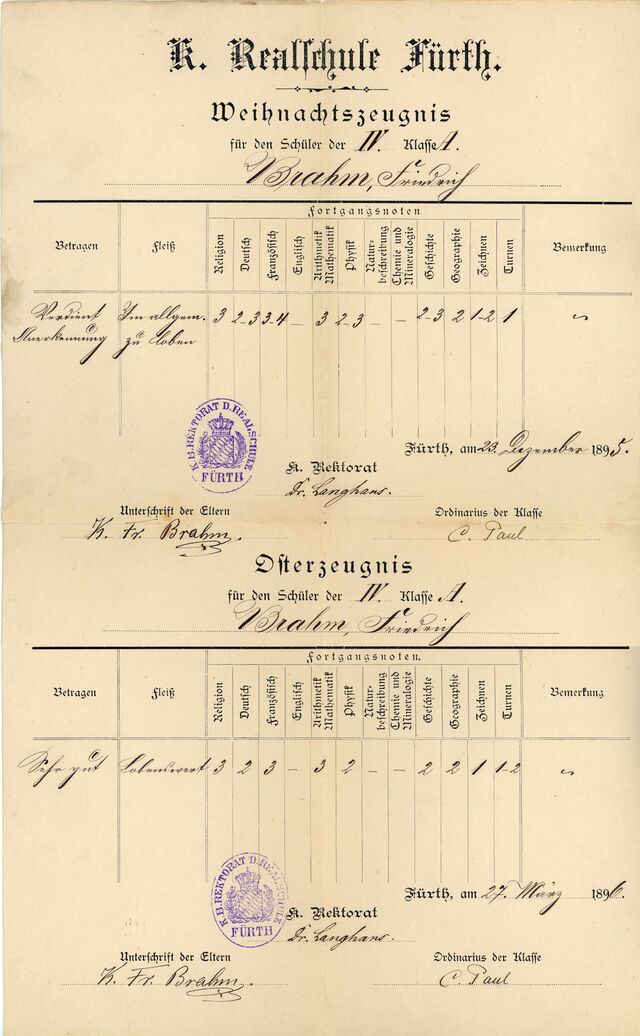 K. Realschule Fürth.
Weihnachtszeugnis
für den Schüler der IV. Klasse A.
Brahm, Friedrich
Fortgangsnoten.
Betragen Fleiß Religion Deutsch Französisch Englisch Arithmetik Mathematik Physik Natur-beschreibung Chemie und Mineralogie Geschichte Geographie Zeichnen Turnen Bemerkung
Verdient Im allgem. 3 2-3 3-4 – 3 2-3 – – 2-3 2 1-2 1
Anerkennung zu loben
K.B. REKTORAT D. REALSCHULE FÜRTH
Fürth, am 23. Dezember 1895.
K. Rektorat
Dr. Langhans.
Unterschrift der Eltern Ordinarius der Klasse
K. Fr. Brahm. C. Paul
Osterzeugnis
für den Schüler der IV Klasse A.
Brahm, Friedrich
Fortgangsnoten.
Betragen Fleiß Religion Deutsch Französisch Englisch Arithmetik Mathematik Physik Natur-beschreibung Chemie und Mineralogie Geschichte Geographie Zeichnen Turnen Bemerkung
Sehr gut Lobenswert 3 2 3 – 3 2 – – 2 2 1 1-2
K.B. REKTORAT D. REALSCHULE FÜRTH
Fürth, am 27. März 1896.
K. Rektorat
Dr. Langhans.
Unterschrift der Eltern Ordinarius der Klasse
K. Fr. Brahm. C. Paul